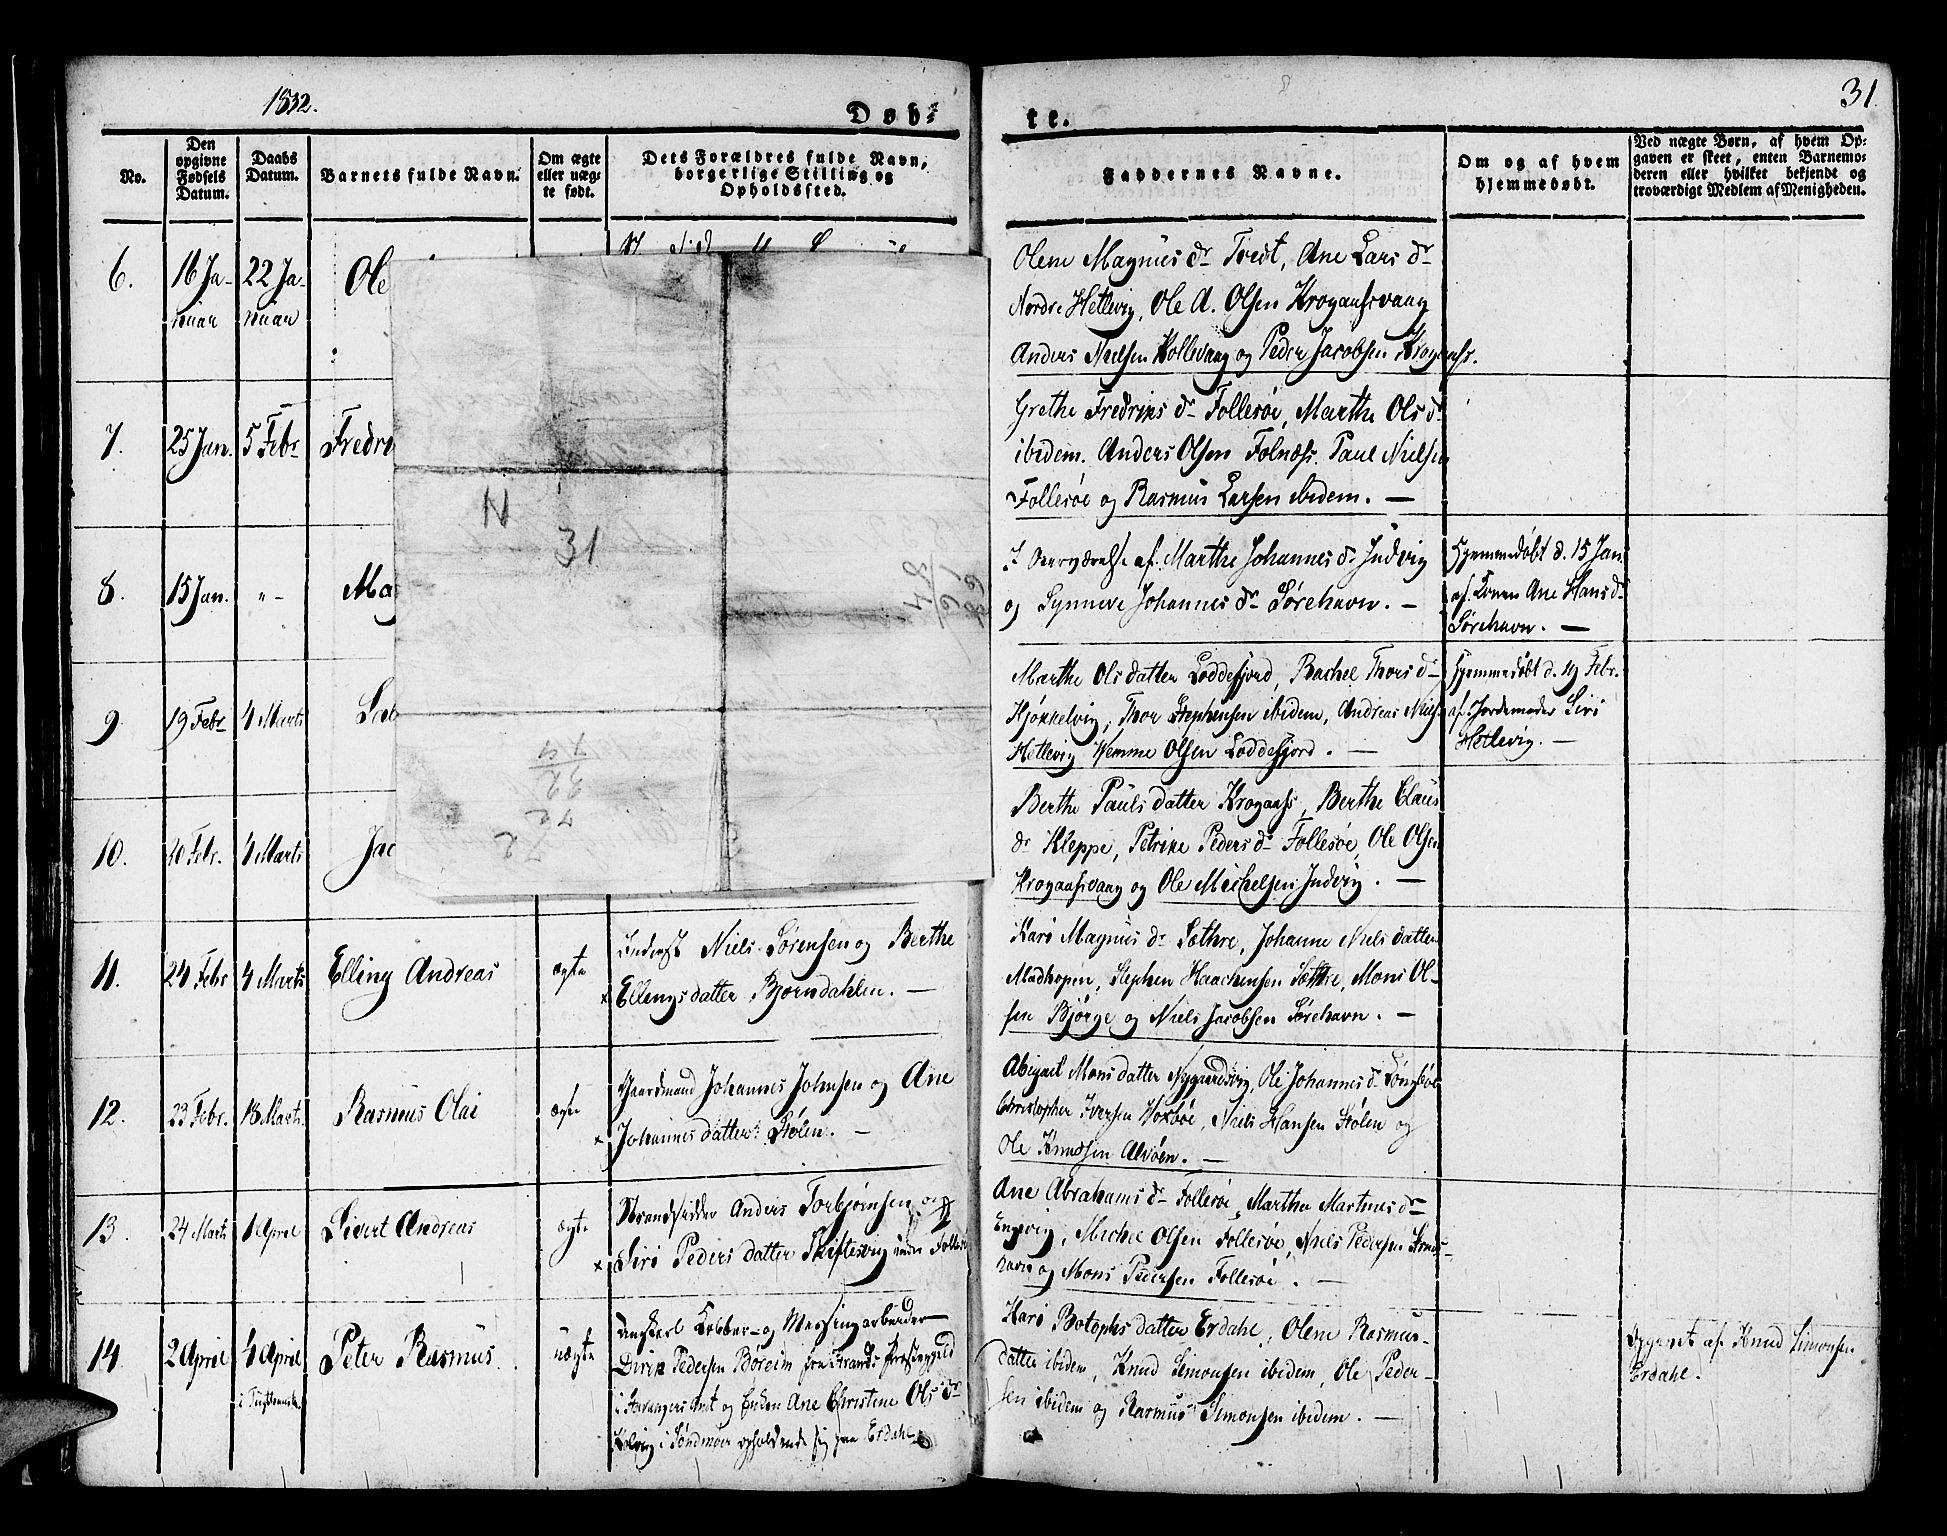 1832.
Døb-
te.
31.
No.
Den opgivne Fødsels Datum.
Daabs Datum.
Barnets fulde Navn.
Om ægte eller uæg-te født.
Dets Forældres fulde Navn, borgerlige Stilling og Opholdssted.
Faddernes Navne.
Om og af hvem hjemmedøbt.
Ved uægte Børn, af hvem Op-
gaven er skeet, enten Barnemo-
deren eller hvilket bekjendt og
troværdigt Medlem af Menigheden.
6.
16 Ja-
nuar
22 Ja-
nuar
Ole
Olene Magnus dr Tvedt, Ane Lars dr
Nordre Hetlevig, Ole A. Olsen Krogaasvaag
Anders Nielsen Kollevaag og Peder Jacobsen Krogaass.
7.
25 Jan.
5 Febr
Fredri
Grethe Fredriks dr Follesøe, Marthe Ols dr
ibidem. Anders Olsen Folnæss. Paul Nielsen
Follesøe og Rasmus Larsen ibidem. —
N
31
8.
15 Jan.
" -
Mag
I Overværelse af Marthe Johannes dr Indvig
og Synneve Johannes dr Sørehavn. —
Hjemmedøbt d. 15 Jan.
af Konen Ane Hans dr
Sørehavn. —
9.
19 Febr
4 Marts
Marthe Olsdatter Loddefjord, Rachel Thors d-
Kjøkkelvig, Thor Stephensen ibidem, Andreas Niels
Hetlevig Hemme Olsen Loddefjord. —
Hjemmedøbt d. 19 Febr.
af Jordemoder Siri
Hetlevig. —
10.
20 Febr.
4 Marts
Jac
Berthe Paulsdatter Krogaass, Berthe Claus
dr Kleppe, Petrike Peders dr Follesøe, Ole Olsen
Krogaasvaag og Ole Michelsen Indvig. —
11.
24 Febr
4 Marts
Elling Andreas
ægte
Inderst Niels Sørensen og Berthe
x Ellingsdatter Bjørndahlen. —
Kari Magnus dr Sæthre, Johanne Nielsdatter
Madhopen, Stephen Haachensen Sæthre, Mons Ol-
sen Bjørge og Niels Jacobsen Sørehavn. —
12.
23 Febr.
18 Marts
Rasmus Olai
ægte
Gaardmand Johannes Johnsen og Ane
x Johannesdatter Stølen. —
Abigael Monsdatter Nygaardsvig, Ole Johannes dr
Christopher Iversen Hoxøe, Niels Hansen Stølen og
Ole Knudsen Alvøen. —
13.
24 Marts
1 April
Sivert Andreas
ægte
Strandsidder Anders Torbjørnsen og
x Siri Pedersdatter Skiftesvig
Ane Abrahams dr Follesøe, Marthe Martines dr
Engevig, Michel Olsen Follesøe, Niels Pedersen
havn og Mons Pedersen Follesøe. —
14.
2 April
4 April
Peter Rasmus
uægte
Ungkarl Kobber- og Messingarbeider
Dirik Pedersen Børeim fra Strands Præstegjeld
i Stavangers Amt og Enken Ane Christine Ols dr
i Søndmøer opholdende sig paa Erdahl
Kari Botolphsdatter Erdahl, Olene Rasmus-
datter ibidem, Knud Simonsen ibidem, Ole Peder-
sen ibidem og Rasmus Simonsen ibidem. —
Opgivet af Knud Simonsen
Erdahl.